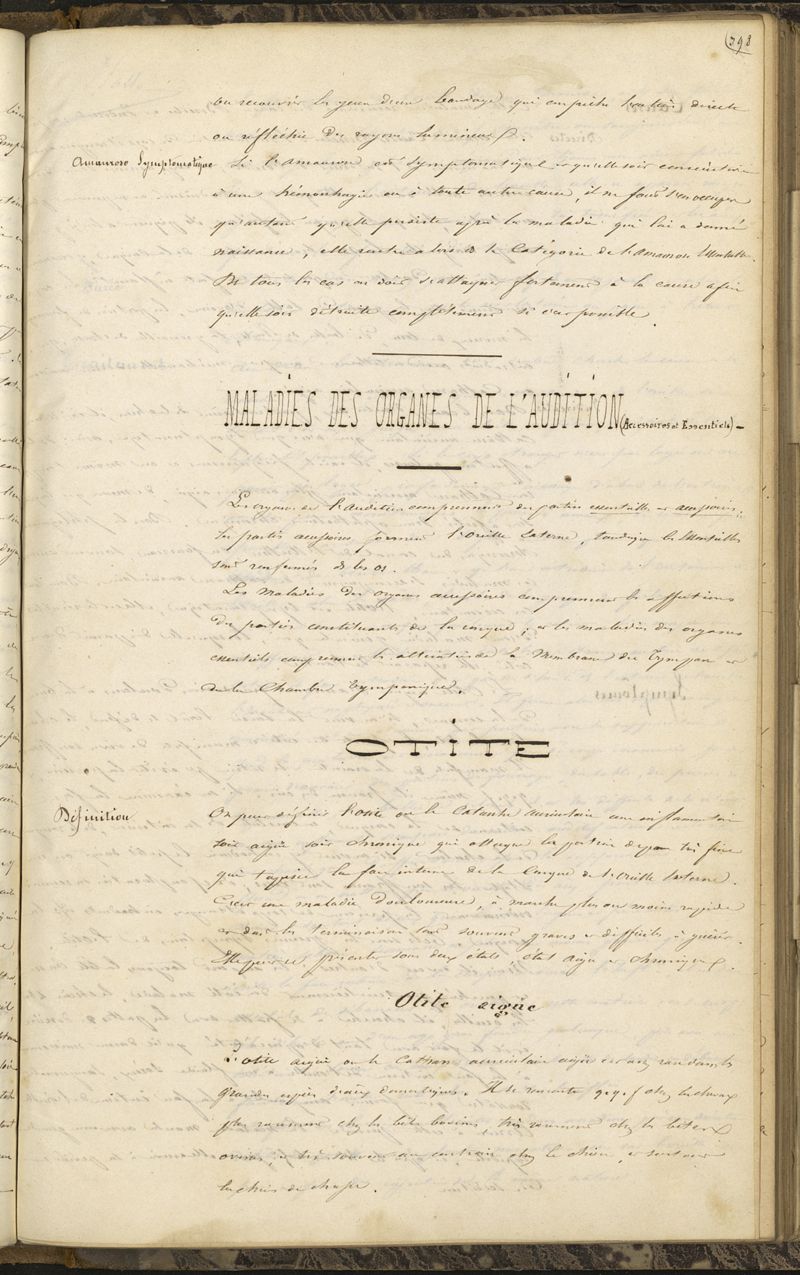 398
ou recouvrir les yeux d'un bandage qui empêche l'entrée directe
ou réfléchie des rayons lumineux.
Amaurose Symptomatique Si l'amaurose est symptomatique et qu'elle soit consécutive
à une hémorrhagie ou à toute autre cause, il ne faut s'en occuper
qu'autant qu'elle persiste après la maladie qui lui a donné
naissance, elle rentre alors ds la Catégorie de l'amaurose
Ds tous les cas on doit s'attaquer fortement à la cause afin
qu'elle soit détruite complètement si c'est possible.
MALADIES DES ORGANES DE L'AUDITION (Accessoires et Essentiels)
Les organes de l'audition comprennent des parties essentielles et accessoires.
Les parties accessoires forment l'oreille Externe, tandis que les essentielles
sont renfermées ds les os.
Les maladies des organes accessoires comprennent les affections
des parties constituantes de la conque; et les maladies des organes
essentiels comprennent les altérations de la Membrane du Tympan et
de la Chambre tympanique.
OTITE
Définition On peut définir l'otite ou le Catarrhe auriculaire une inflammation
soit aigüe soit chronique qui attaque la portion de peau très fine
qui tapisse la face interne de la Conque de l'oreille Externe.
C'est une maladie douloureuse, à marche plus ou moins rapide
et dont les terminaisons sont souvent graves et difficiles à guérir.
Elle peut se présenter sous deux états, état aigu et chronique.
Otite aigüe
L'otite aigüe ou le Catarrhe auriculaire aigu est assez rare dans les
grandes espèces d'eaux domestiques. Il se rencontre q.q.f chez les chevaux
plus rarement chez les bêtes bovines, très rarement chez les bêtes
ovines, et très souvent au contraire chez le chien, et surtout
les chiens de chasse.